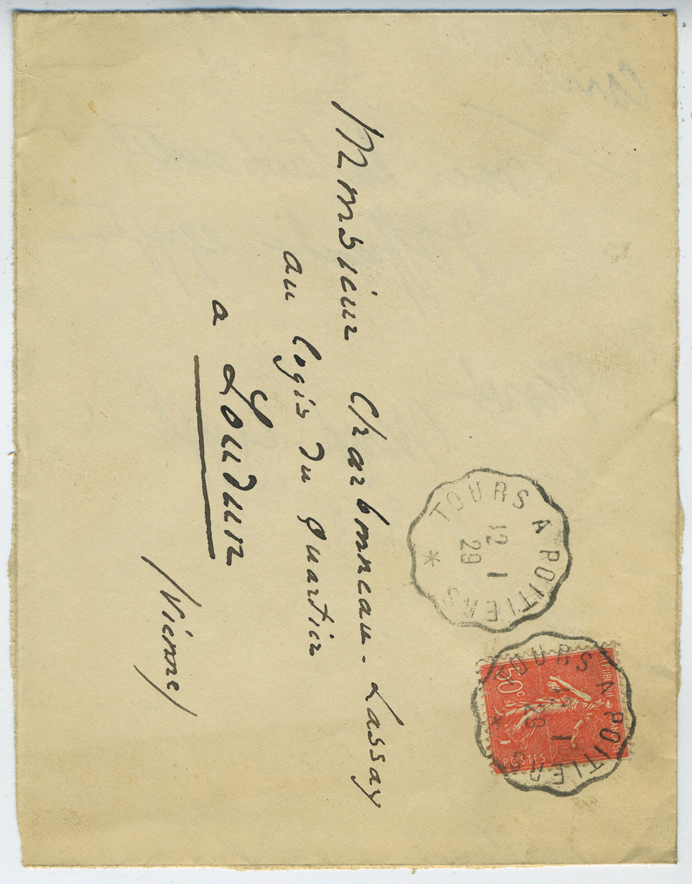 Monsieur Charbonneau-Lassay
au logis du Quartier
a Loudun
/Vienne/
TOURS A POITIERS
12 1
29
*
TOURS A POITIERS
1
29
*
50c
POSTES